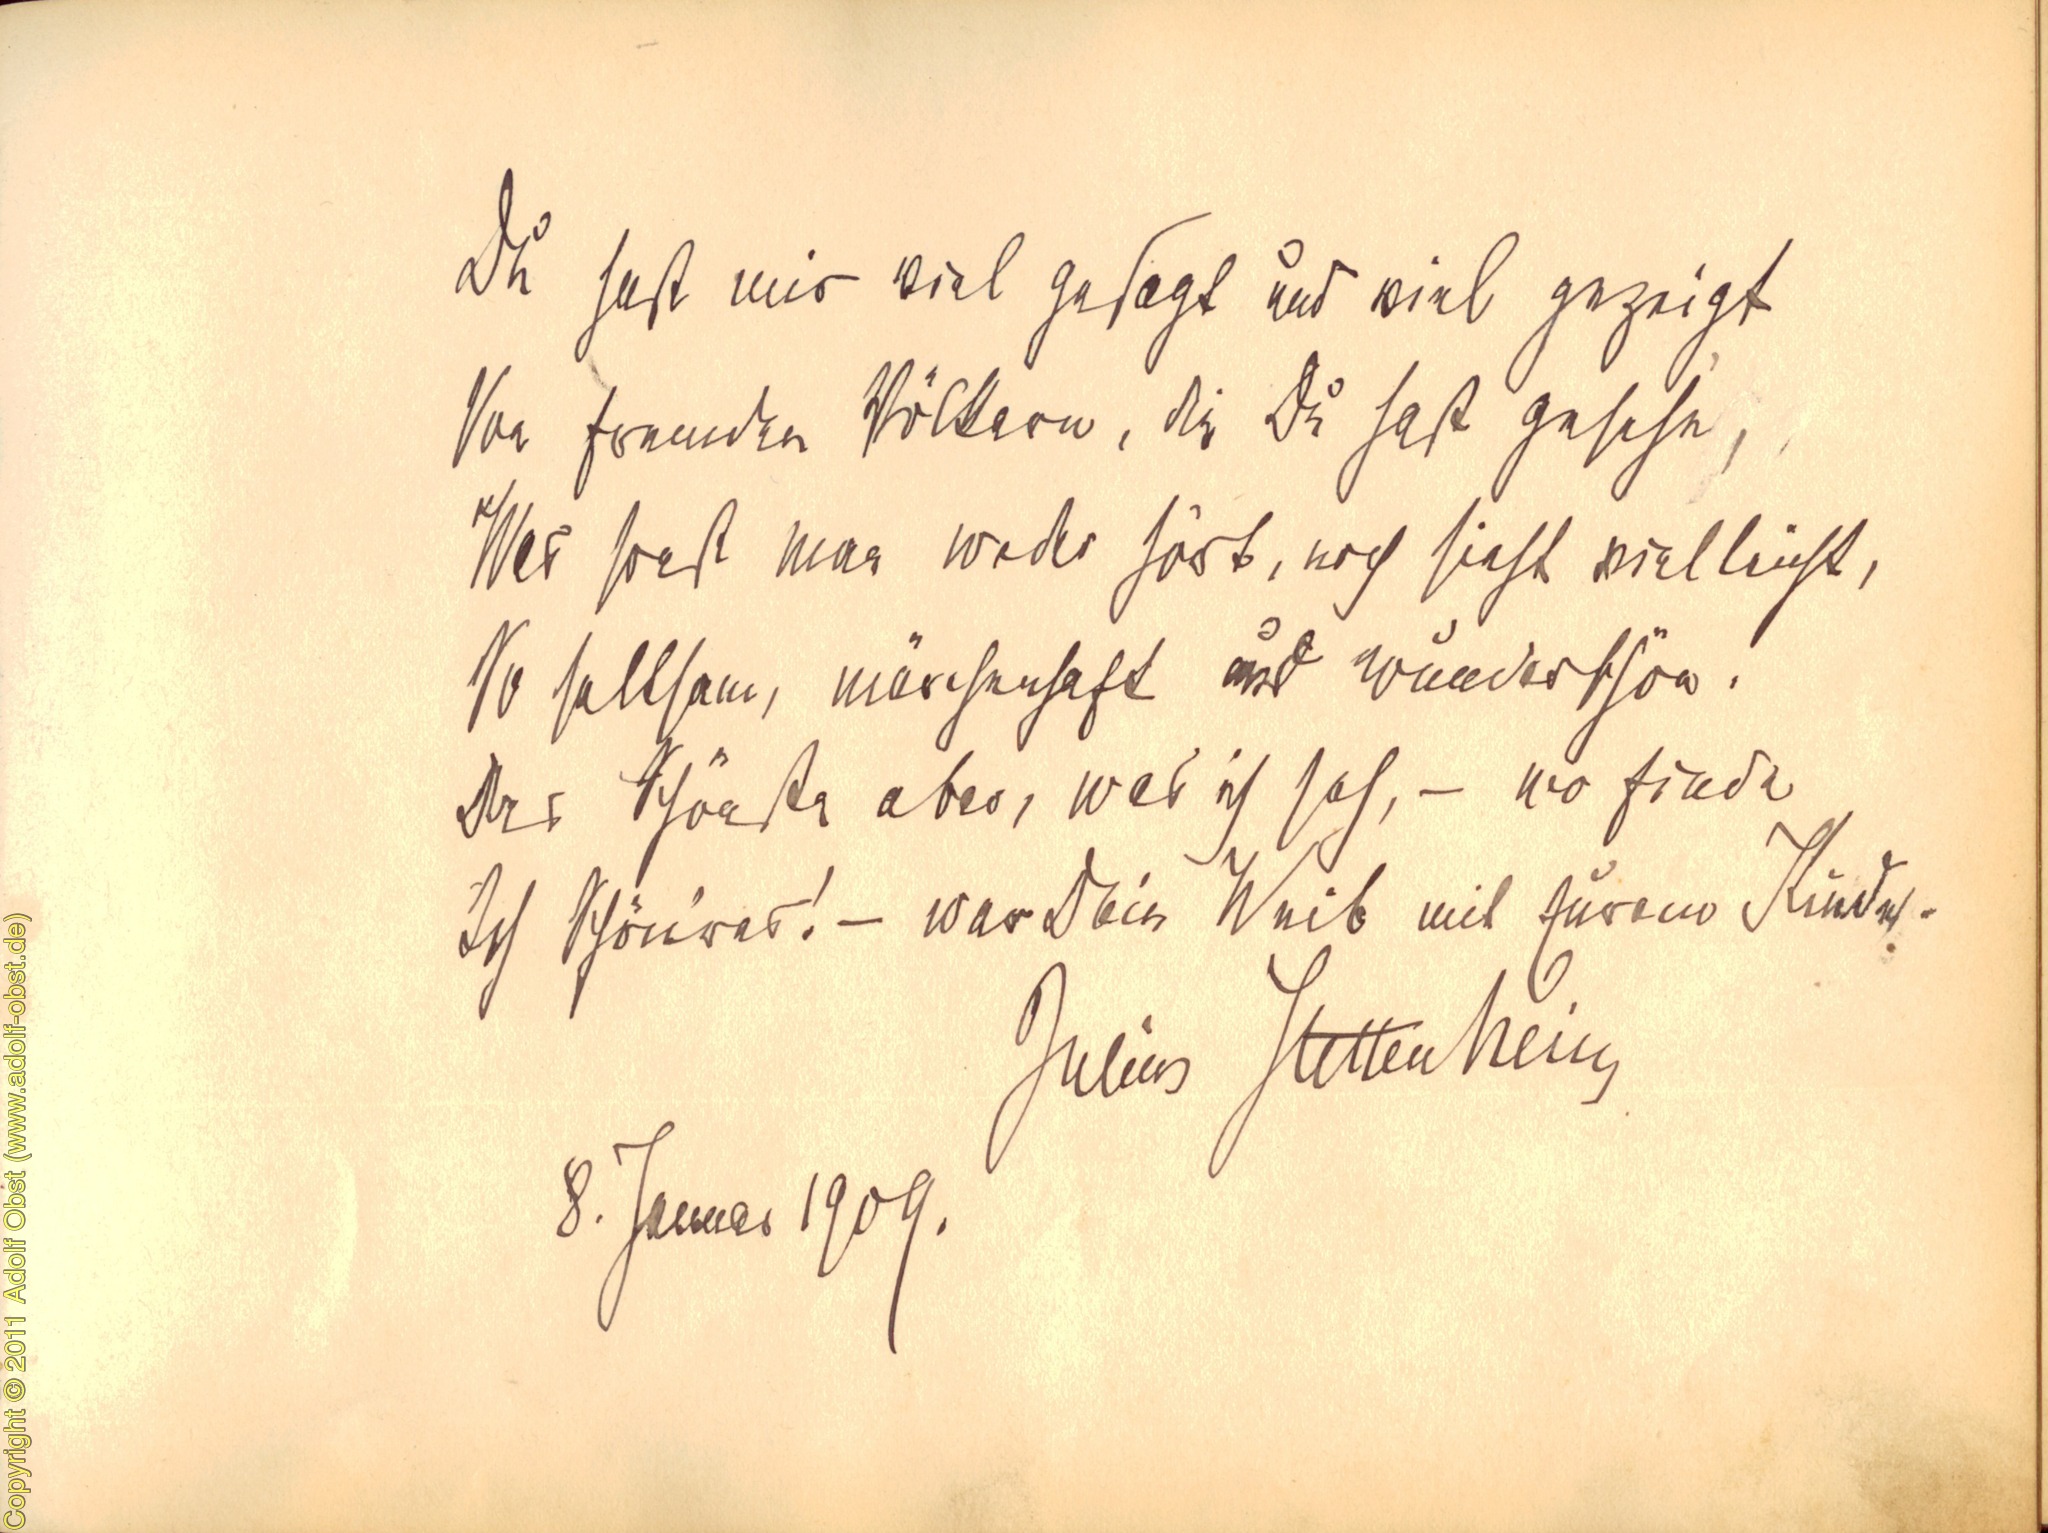 Du hast mir viel gesagt und viel gezeigt
Von fremden Völkern, die Du hast gesehn,
Was sonst man weder hört, noch sieht vielleicht,
So seltsam, märchenhaft und wunderschön.
Das Schönste aber, was ich sah, – wo finde
Ich Schön'res! – war Dein Weib mit Eurem Kinde.
Julius Stettenheim
8. Januar 1909.
Copyright © 2011 Adolf Obst (www.adolf-obst.de)